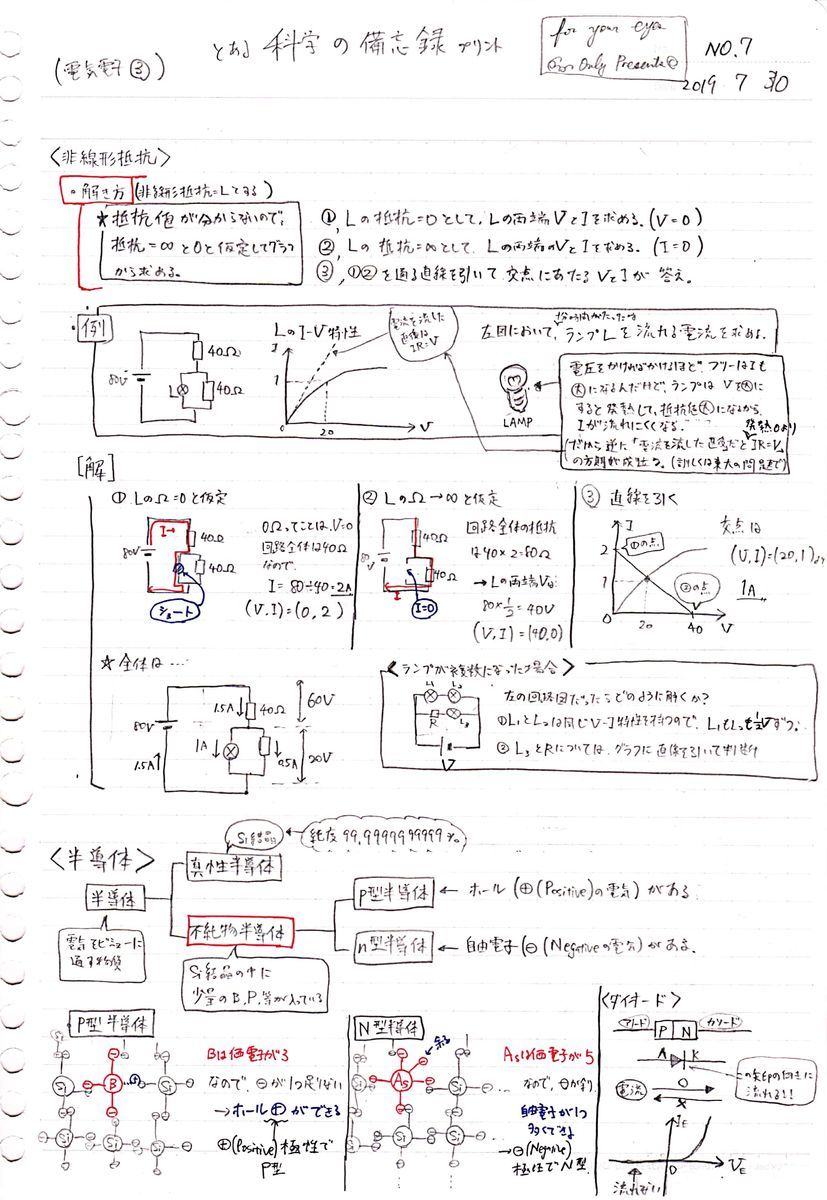 とある 科学の備忘録 プリント
(電気電子③)
for your eyes
Only Presents
NO.7
2019 7 30
<非線形抵抗>
・解き方 (非線形抵抗=Lとする)
★抵抗値が分からないので、
抵抗=∞と0と仮定してグラフ
から求める。
①, Lの抵抗=0として、Lの両端VとIを求める。(V=0)
②, Lの抵抗=∞として、Lの両端のVとIを求める。(I=0)
③, ①②を通る直線を引いて交点にあたるVとIが答え。
例
80V
40Ω
L
40Ω
LのI-V特性
I
1
0
20
V
電流を流した
直後は
IR=V
左図において、ランプLを流れる電流を求める。
LAMP
電圧をかければかけるほど、フツーはIも
大になるんだけど、ランプはVを大に
すると発熱して、抵抗値大になるから
Iが流れにくくなる。
発熱のより
だから逆に「電流を流した直後だとIR=V」
[解]
① LのΩ=0と仮定
I→
80V
40Ω
40Ω
ショート
0Ωってことは、V=0
回路全体は40Ω
なので、
I=80÷40=2A
(V,I)=(0,2)
② LのΩ→∞と仮定
80V
40Ω
40Ω
I
I=0
回路全体の抵抗
は40×2=80Ω
→Lの両端Vは
80×1/2=40V
(V,I)=(40,0)
③ 直線を引く
I
2
①の点
1
②の点
0
20
40
V
交点は
(V,I)=(20,1)より
1A
★全体は…
80V
1.5A↑
1.5A↓
40Ω
1A↓
0.5A
60V
20V
<ランプが複数になった場合>
L₁ L₂
R L₃
V
左の回路図だったらどのように解くか?
①L₁とL₂は同じV-I特性を持つので、L₁もL₂も1/2Vずつ。
② L₃とRについては、グラフに直線を引いて判断
<半導体>
Si結晶
純度99.9999999999%
真性半導体
半導体
電気をビミョーに
通す物質
不純物半導体
Si結晶の中に
少量のB,P,等が入っている
P型半導体 ← ホール (⊕(Positive)の電気)がある
n型半導体 ← 自由電子(⊖(Negativeの電気)がある.
P型半導体
Si B Si
Si Si Si
Bは価電子が3
なので、⊖が1つ足りない
→ホール⊕ができる
⊕(Positive)極性で
P型
N型半導体
余る
As Si
Si Si Si
Asは価電子が5
なので、⊖が余り
自由電子が1つ
多くできる
→⊖(Negative)
極性でN型.
<ダイオード>
アノード P N カソード
A K
電流
○
×
の矢印の向きに
流れる!!
I_E
0
V_E
流れない